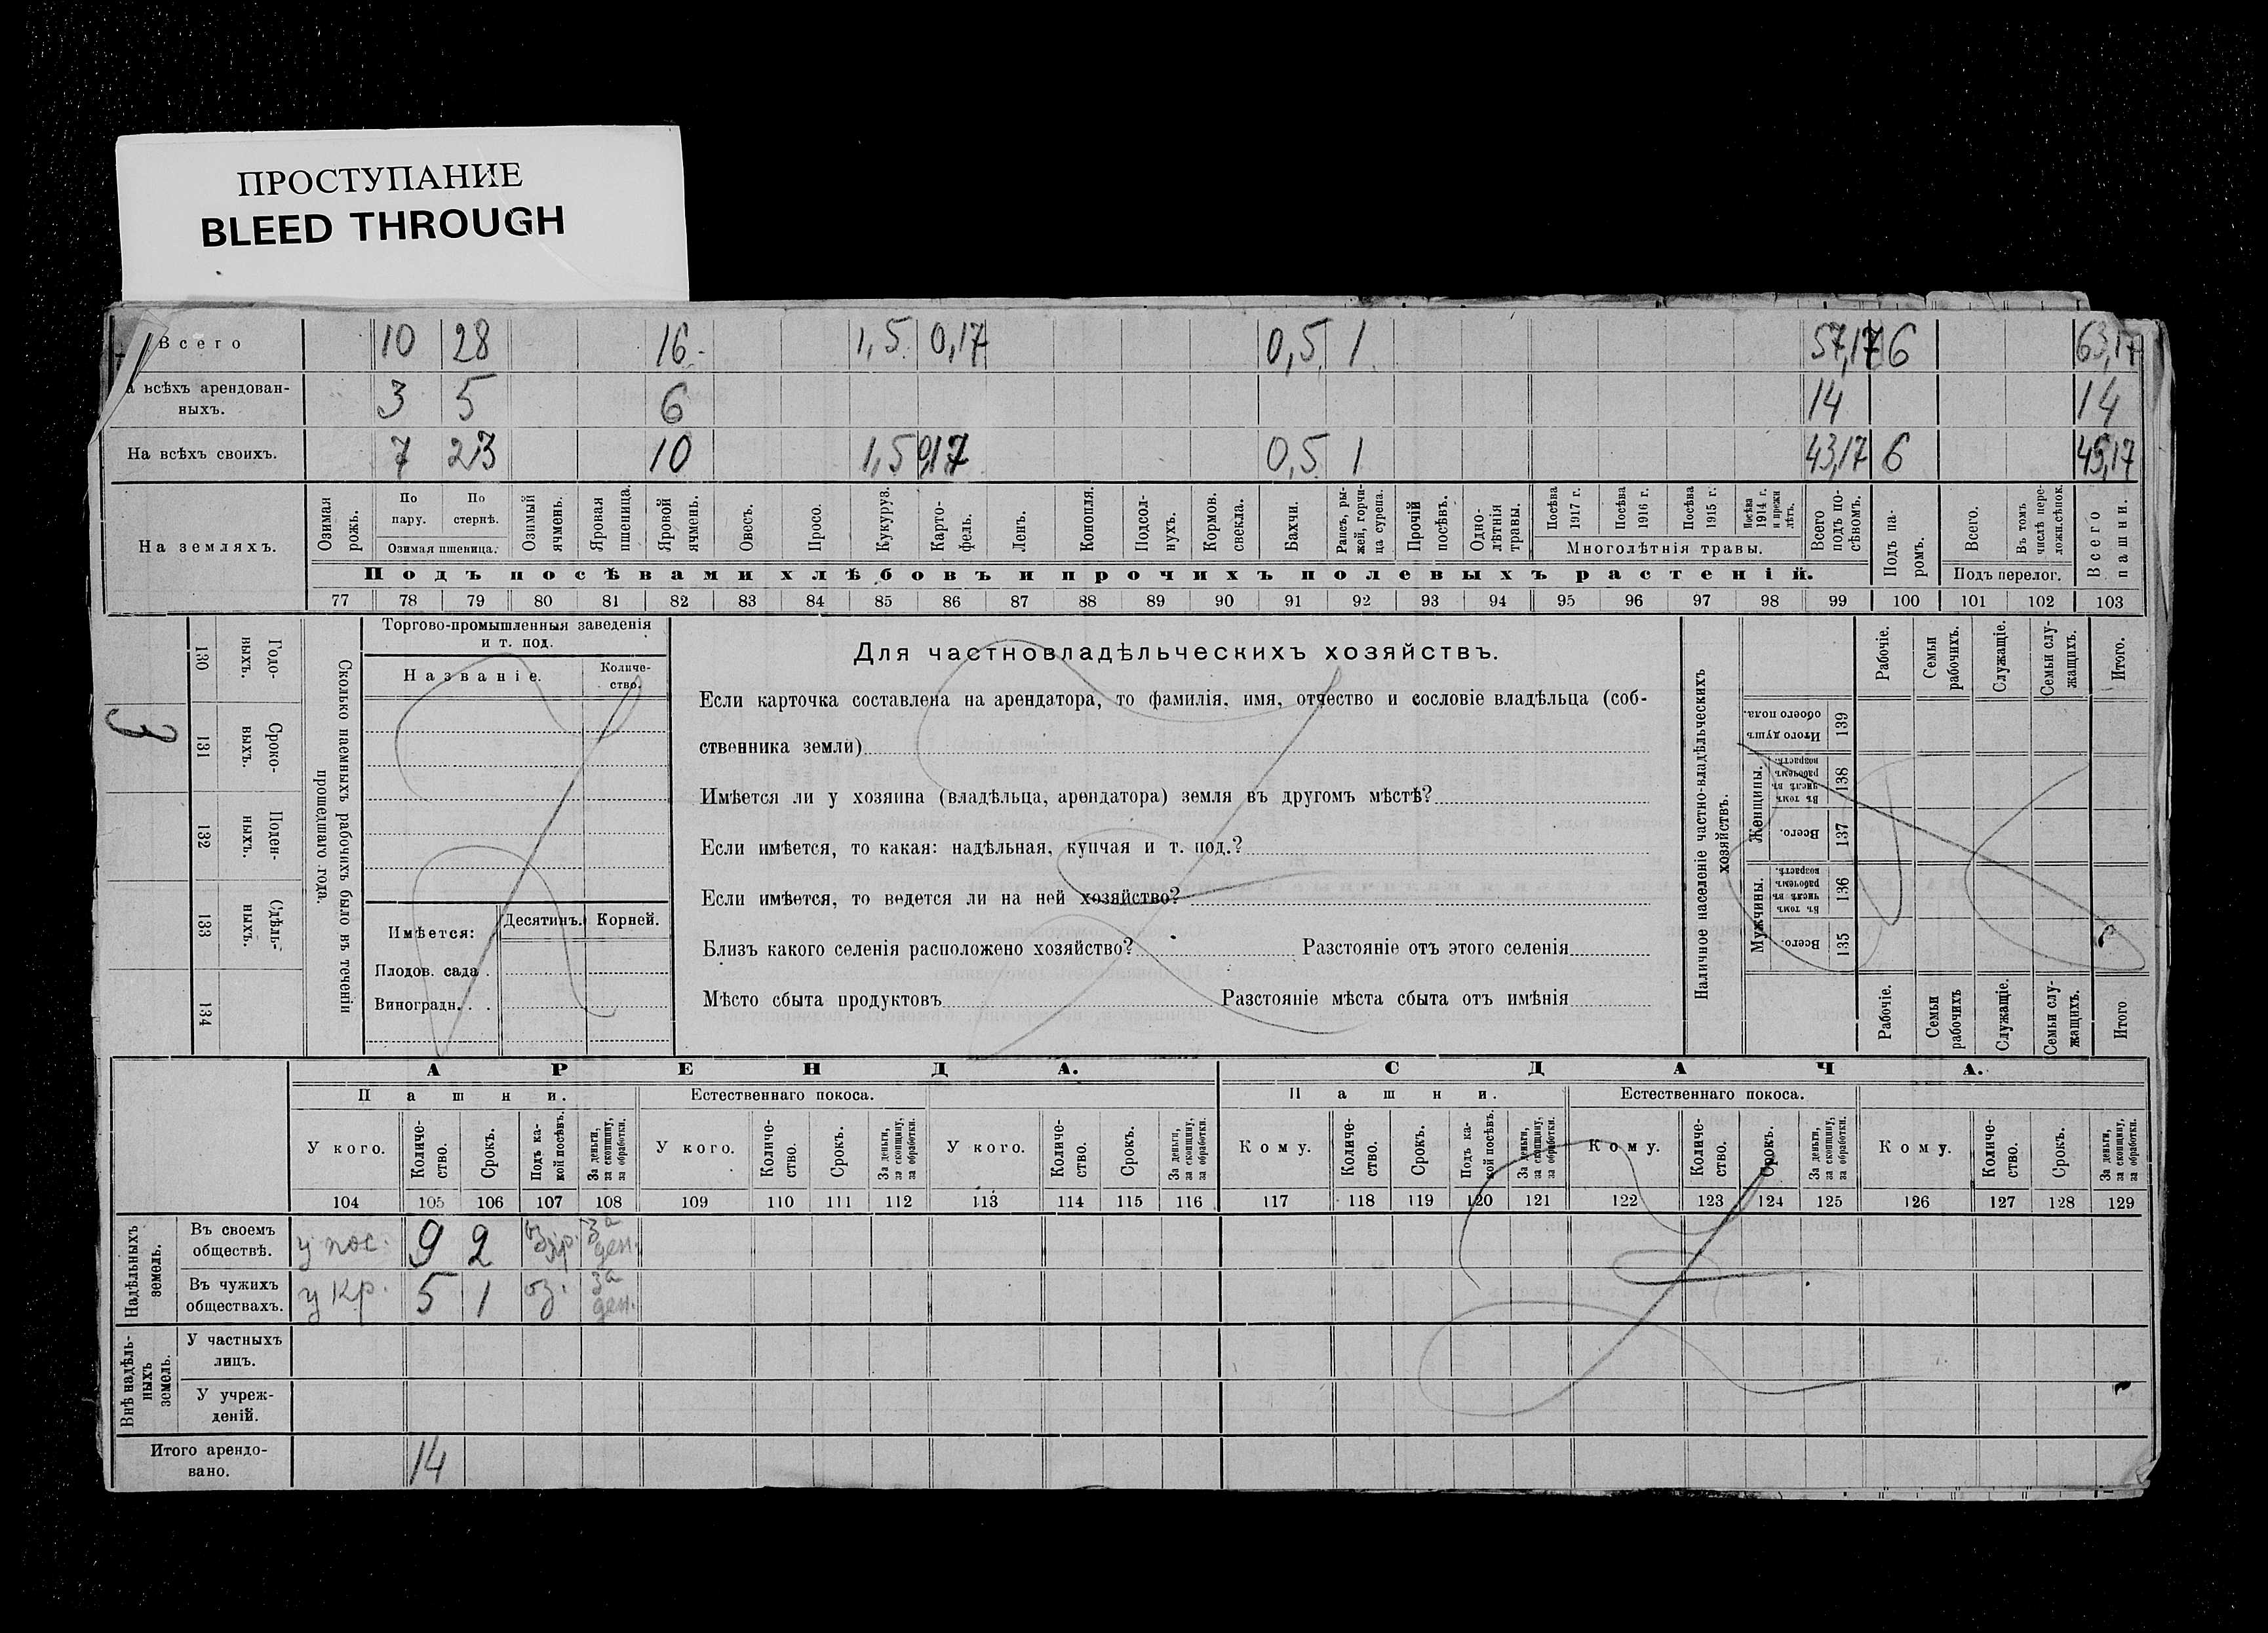 ПРОСТУПАНИЕ
BLEED THROUGH
Всего 10 28 16 1,5 0,17 0,5 1 57,17 6 63,17
а всѣхъ арендован-
ныхъ. 3 5 6 14 14
На всѣхъ своихъ. 7 23 10 1,5 0,17 0,5 1 43,17 6 49,17
На земляхъ.
Озимая рожь.
По пару.
По стернѣ.
Озимая пшеница.
Озимый ячмень.
Яровая пшеница.
Яровой ячмень.
Овесъ.
Просо.
Кукуруз.
Карто-
фель.
Ленъ.
Конопля.
Подсол-
нухъ.
Кормов. свекла.
Бахчи.
Рапсъ, ры-
жей, горчи-
ца сурепа.
Прочій посѣвъ.
Одно-
лѣтнія травы.
Посѣва 1917 г.
Посѣва 1916 г.
Посѣва 1915 г.
Посѣва 1914 г. и прежн лѣтъ.
Многолѣтнія травы.
Всего подъ по-
сѣвомъ.
Подъ па-
ромъ.
Всего.
Въ томъ числѣ пере-
ложн.сѣнок.
Подъ перелог.
Всего пашни.
Подъ посѣвами хлѣбовъ и прочихъ полевыхъ растеній.
77 78 79 80 81 82 83 84 85 86 87 88 89 90 91 92 93 94 95 96 97 98 99 100 101 102 103
3
130 Годо-
выхъ.
131 Сроко-
выхъ.
132 Поден-
ныхъ.
133 Сдѣль-
ныхъ.
134
Сколько наемныхъ рабочихъ было въ теченіи
прошедшаго года.
Торгово-промышленныя заведенія
и т. под.
Названіе.
Количе-
ство.
Имѣется:
Десятинъ.
Корней.
Плодов. сада .
Виноградн. . .
Для частновладѣльческихъ хозяйствъ.
Если карточка составлена на арендатора, то фамилія, имя, отчество и сословіе владѣльца (соб-
ственника земли)
Имѣется ли у хозяина (владѣльца, арендатора) земля въ другомъ мѣстѣ?
Если имѣется, то какая: надѣльная, купчая и т. под.?
Если имѣется, то ведется ли на ней хозяйство?
Близъ какого селенія расположено хозяйство? Разстояніе отъ этого селенія
Мѣсто сбыта продуктовъ Разстояніе мѣста сбыта отъ имѣнія
Наличное населеніе частно-владѣльческихъ
хозяйствъ.
Рабочіе.
Семьи рабочихъ.
Служащіе.
Семьи слу-
жащихъ.
Итого.
Итого душъ обоего пола. 139
Женщины.
Въ томъ числѣ въ рабочемъ возрастѣ. 138
Всего. 137
Мужчины.
Въ томъ числѣ въ рабочемъ возрастѣ. 136
Всего. 135
Рабочіе.
Семьи рабочихъ
Служащіе.
Семьи слу-
жащихъ.
Итого
АРЕНДА.
СДАЧА.
Пашни.
Естественнаго покоса.
Пашни.
Естественнаго покоса.
У кого.
Количе-
ство.
Срокъ.
Подъ ка-
кой посѣвъ.
За деньги, за скопщину, за обработки.
У кого.
Количе-
ство.
Срокъ.
За деньги, за скопщину, за обработки.
У кого.
Количе-
ство.
Срокъ.
За деньги, за скопщину, за обработки.
Кому.
Количе-
ство.
Срокъ.
Подъ ка-
кой посѣвъ.
За деньги, за скопщину, за обработки.
Кому.
Количе-
ство.
Срокъ.
За деньги, за скопщину, за обработки.
Кому.
Количе-
ство.
Срокъ.
За деньги, за скопщину, за обработки.
104 105 106 107 108 109 110 111 112 113 114 115 116 117 118 119 120 121 122 123 124 125 126 127 128 129
Надѣльныхъ земель.
Въ своемъ
обществѣ. у пос. 9 2 за ден.
Въ чужихъ
обществахъ. у кр. 5 1 оз. за ден.
Внѣ надѣль-
ныхъ земель.
У частныхъ
лицъ.
У учреж-
деній.
Итого арендо-
вано. 14